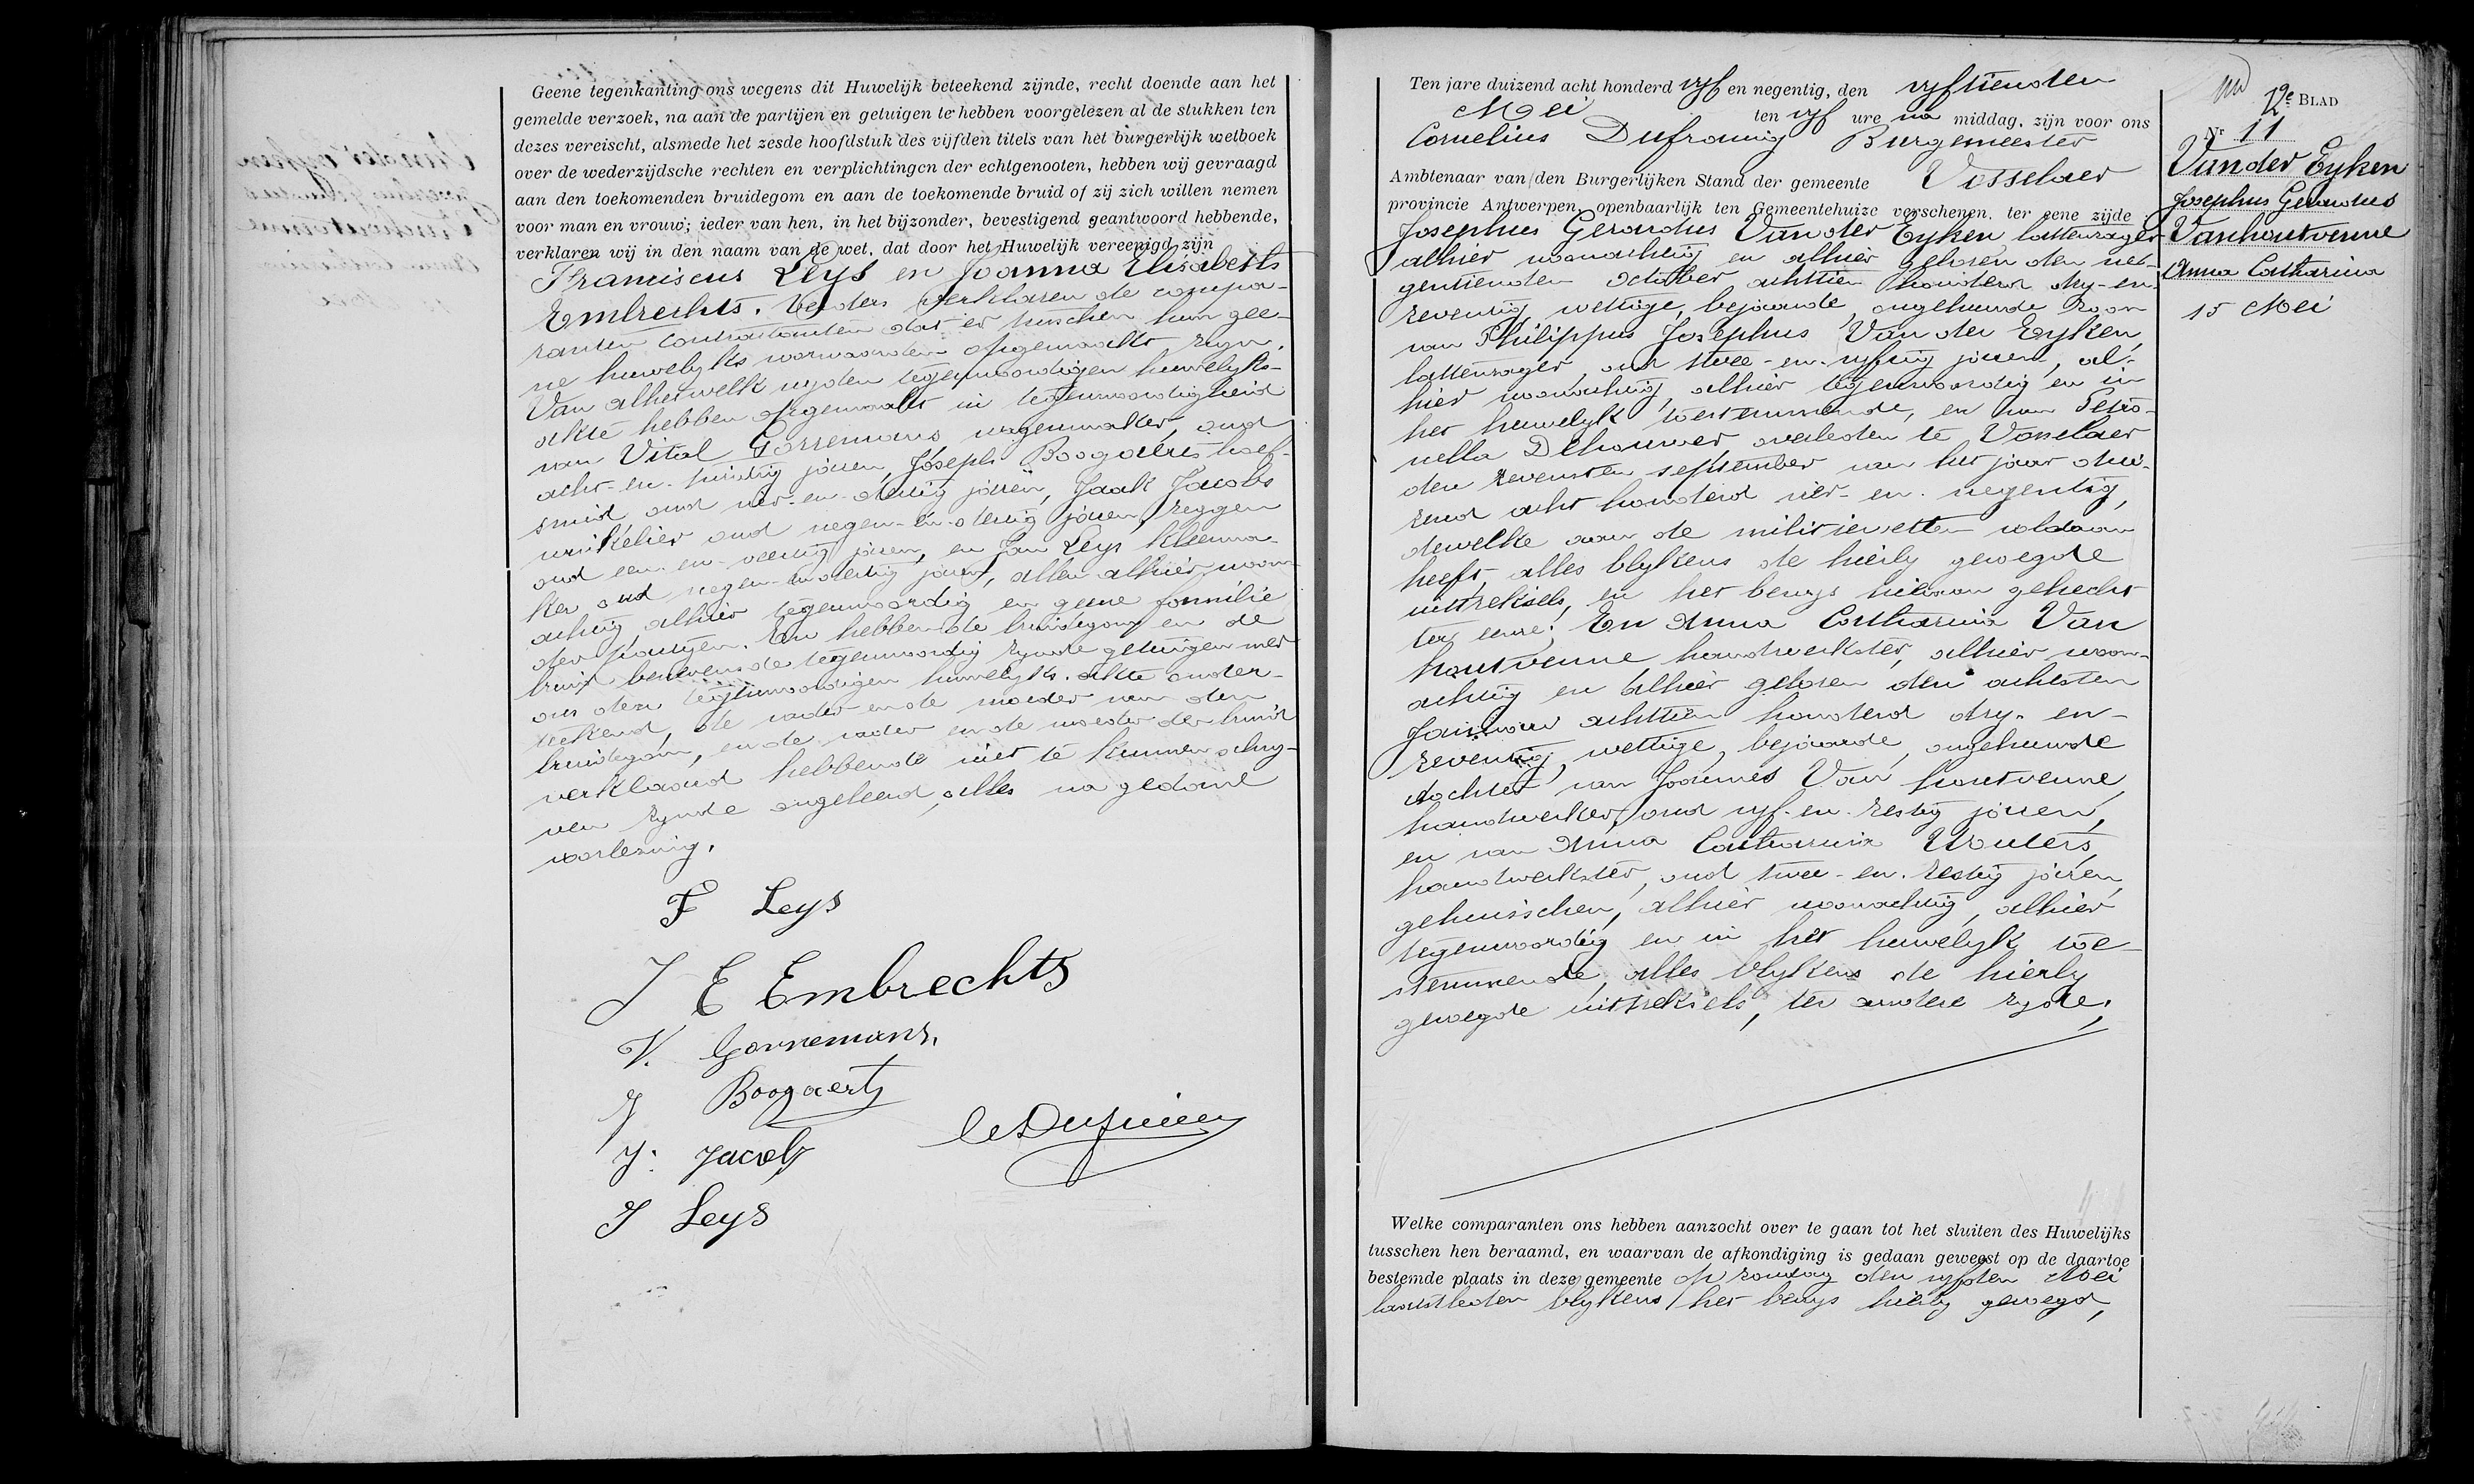 Geene tegenkanting ons wegens dit Huwelijk beteekend zijnde, recht doende aan het
gemelde verzoek, na aan de partijen en getuigen te hebben voorgelezen al de stukken ten
dezes vereischt, alsmede het zesde hoofdstuk des vijfden titels van het burgerlijk wetboek
over de wederzijdsche rechten en verplichtingen der echtgenooten, hebben wij gevraagd
aan den toekomenden bruidegom en aan de toekomende bruid of zij zich willen nemen
voor man en vrouw; ieder van hen, in het bijzonder, bevestigend geantwoord hebbende,
verklaren wij in den naam van de wet, dat door het Huwelijk vereenigd zijn
Franciscus Leys en Joanna Elisabeth
Embrechts. Verders verklaren de compa-
ranten contractanten dat er tusschen hun gee-
ne huwelyks voorwaarden opgemaakt zyn.
Van al hetwelk wy den tegenwoordigen huwelyks-
akte hebben opgemaakt in tegenwoordigheid
van Vital Gorremans wagenmaker, oud
acht-en-twintig jaren, Joseph Boogaerts hoef-
smid oud vier-en-dertig jaren, Jaak Jacobs
winkelier oud negen-en-dertig jaren, zeggen
oud een-en-veertig jaren, en Jan Leys kleerma-
ker oud negen-en-dertig jaren, allen alhier woon-
achtig, alhier tegenwoordig en geene familie
der partyen. En hebben de bruidegom en de
bruid benevens de tegenwoordig zynde getuigen met
ons dezen tegenwoordigen huwelyks-akte onder-
teekend, de vader en de moeder van den
bruidegom, en de vader en de moeder der bruid
verklaard hebbende niet te kunnen schry-
ven zynde ongeleerd, alles na gedane
voorlezing.
F Leys
J E Embrechts
V. Gorremans.
J Boogaerts
J. Jacobs
J Leys
Ten jare duizend acht honderd vyf en negentig, den vyftienden
Mei ten vyf ure na middag, zijn voor ons
Cornelius Dufraing Burgemeester
Ambtenaar van den Burgerlijken Stand der gemeente Vosselaer
provincie Antwerpen, openbaarlijk ten Gemeentehuize verschenen, ter eene zijde
Josephus Gerardus Van der Eyken lattenzager
alhier woonachtig en alhier geboren den ne-
gentienden October achttien honderd dry-en-
zeventig, wettige, bejaarde, ongehuwde zoon
van Philippus Josephus Van der Eyken,
lattenzager, oud twee-en-vyftig jaren, al-
hier woonachtig, alhier tegenwoordig en in
het huwelyk toestemmende, en van Petro-
nella Dehouwer, overleden te Vosselaer
den zevensten september van het jaar dui-
zend acht honderd vier-en-negentig,
dewelke aan de militiewetten voldaan
heeft, alles blykens de hierby gevoegde
uittreksels, en het bewys hieraan gehecht
ter eene; En Anna Catharina Van
houtvenne, handwerkster, alhier woon-
achtig en alhier geboren den achtsten
Januari achttien honderd dry-en-
zeventig, wettige, bejaarde, ongehuwde
dochter van Joannes Van houtvenne,
handwerker, oud vyf-en-zestig jaren,
en van Anna Catharina Wouters,
handwerkster, oud twee-en-zestig jaren,
gehuisschen, alhier woonachtig, alhier
tegenwoordig en in het huwelyk toe-
stemmende, alles blykens de hierby
gevoegde uittreksels, ter andere zyde;
Welke comparanten ons hebben aanzocht over te gaan tot het sluiten des Huwelijks
tusschen hen beraamd, en waarvan de afkondiging is gedaan geweest op de daartoe
bestemde plaats in deze gemeente op zondag den vyfden Mei
laatstleden blykens het bewys hierby gevoegd,
12e BLAD
Nr 11
Van der Eyken
Josephus Gerardus
Vanhoutvenne
Anna Catharina
15 Mei